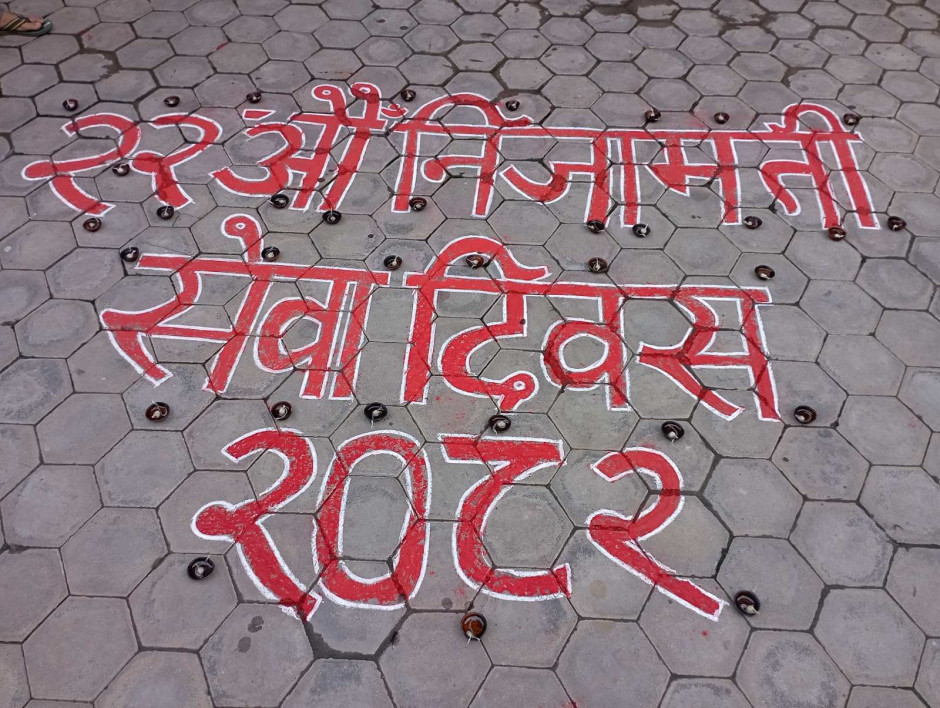 २२औं निजामती
सेवा दिवस
२०८२